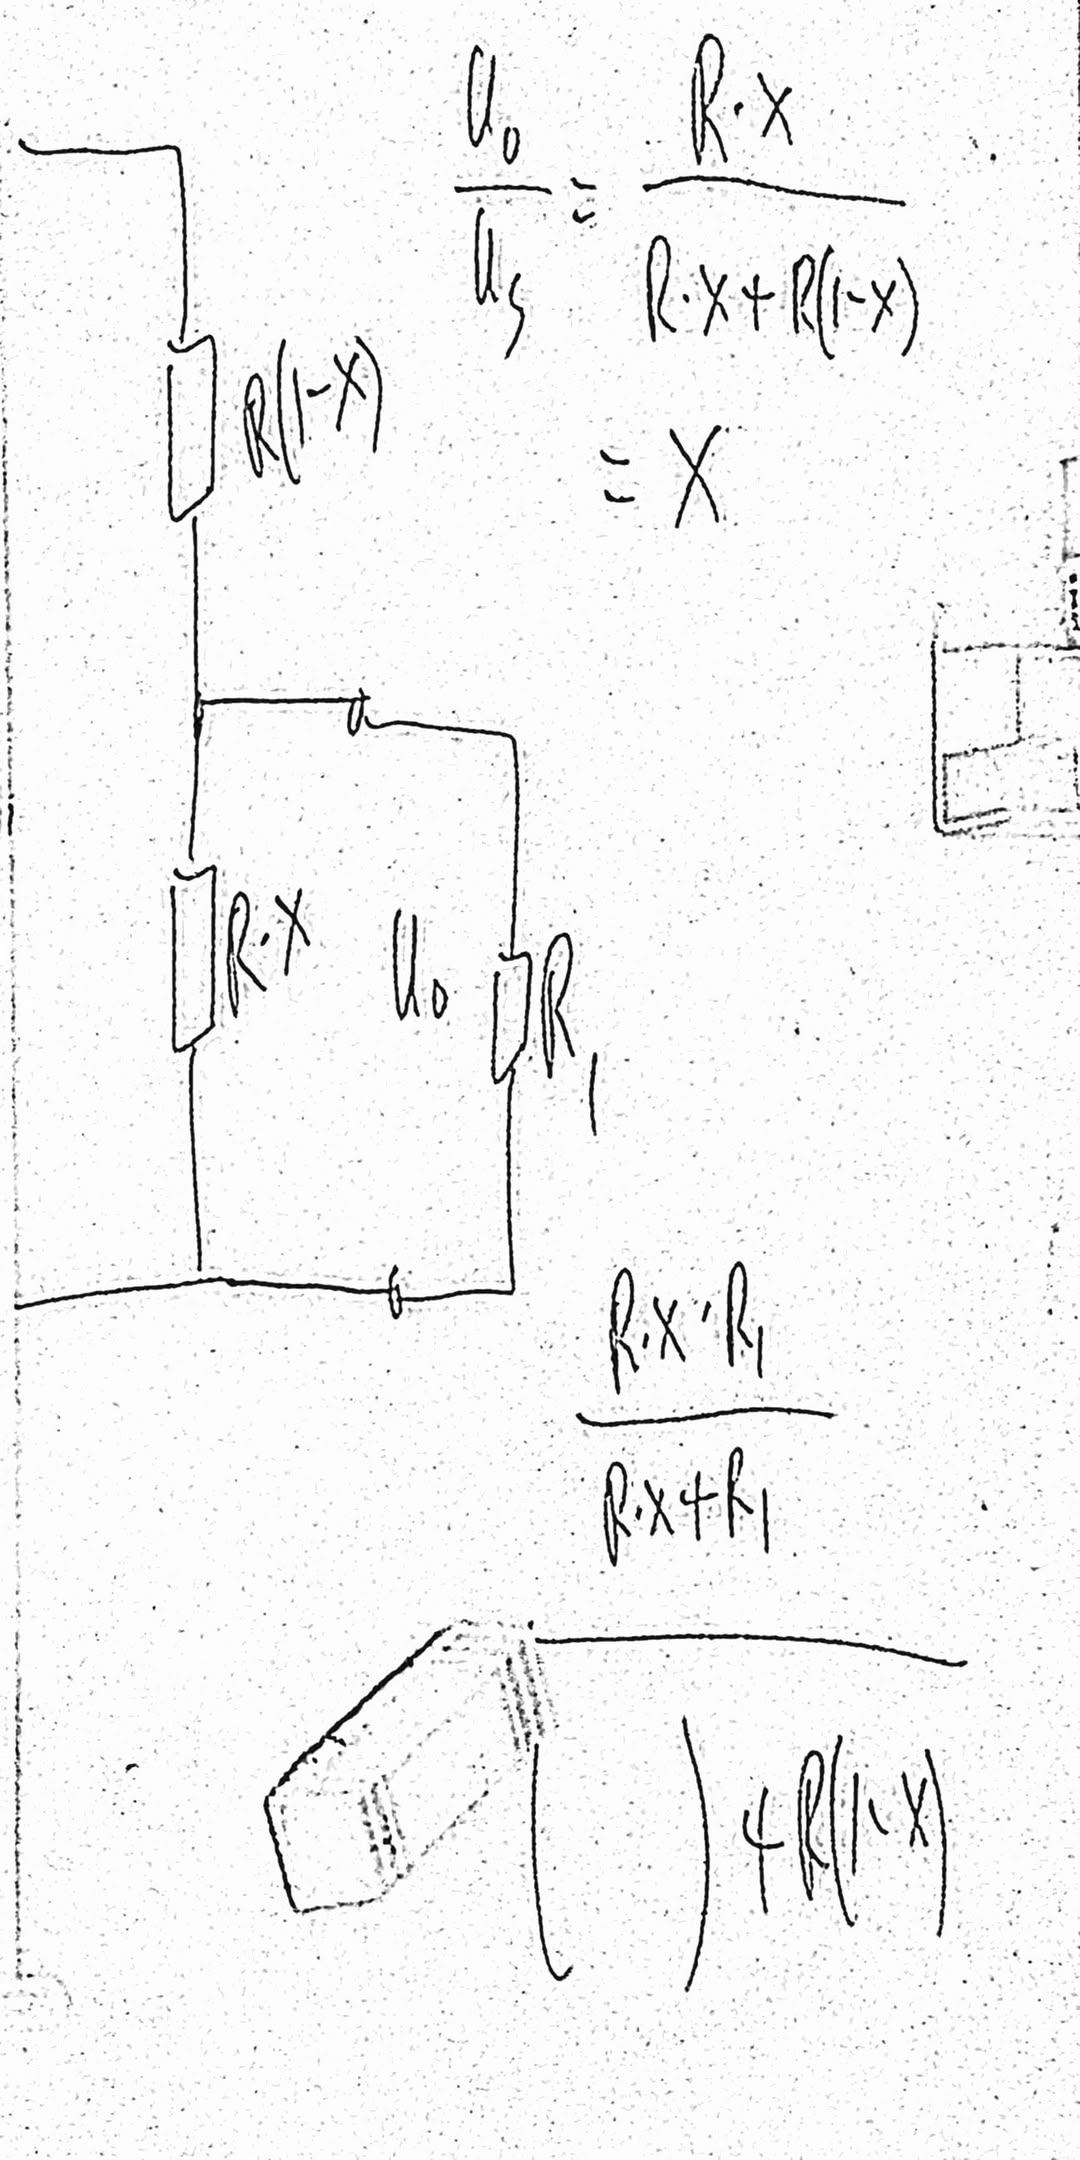 U₀/Uₛ = R·X/(R·X+R(1-X))
= X
R(1-X)
R·X
U₀
R₁
R·X·R₁/(R·X+R₁)
( ) + R(1-X)